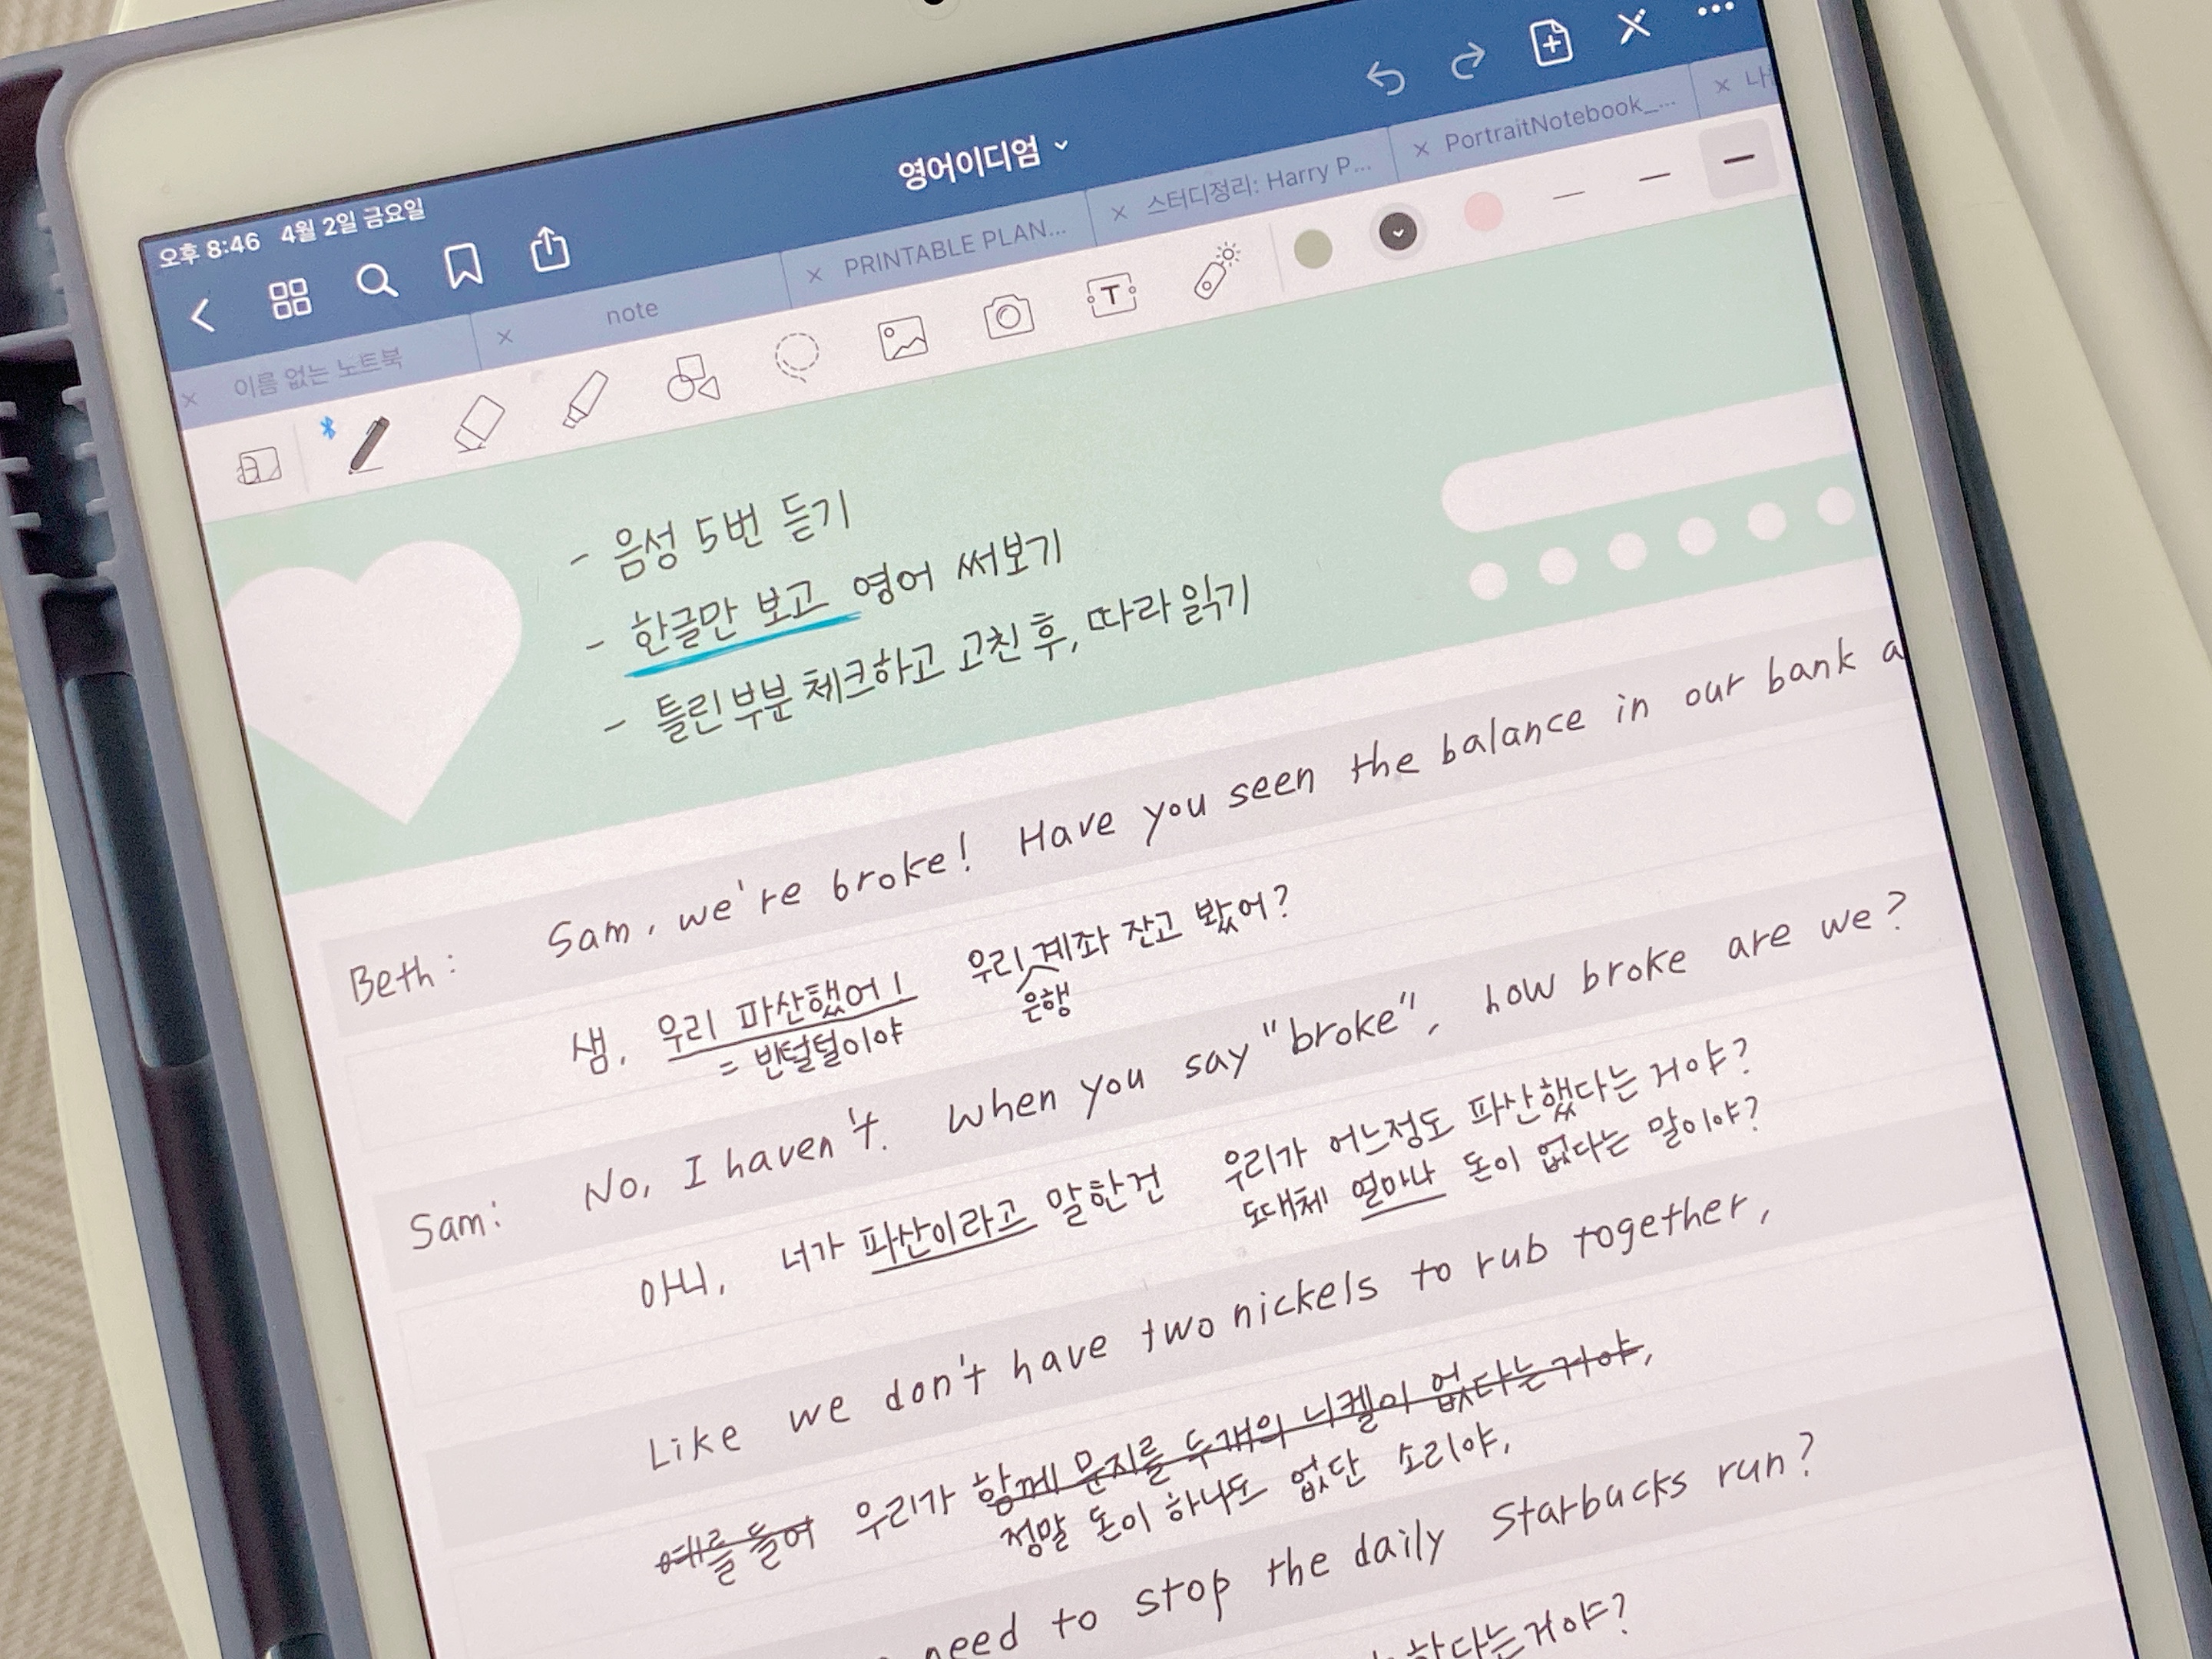 오후 8:46 4월 2일 금요일
영어이디엄
이름 없는 노트북
note
PRINTABLE PLAN...
스터디정리: Harry P...
PortraitNotebook_...
T
- 음성 5번 듣기
- 한글만 보고 영어 써보기
- 틀린부분 체크하고 고친 후, 따라 읽기
Beth: Sam, we're broke! Have you seen the balance in our bank a
샘, 우리 파산했어! 우리 계좌 잔고 봤어?
= 빈털털이야 은행
Sam: No, I haven't. When you say "broke", how broke are we?
아니, 너가 파산이라고 말한건 우리가 어느정도 파산했다는거야?
도대체 얼마나 돈이 없다는 말이야?
Like we don't have two nickels to rub together,
예를 들어 우리가 함께 문지를 두개의 니켈이 없다는거야,
정말 돈이 하나도 없단 소리야,
need to stop the daily Starbucks run?
한다는거야?